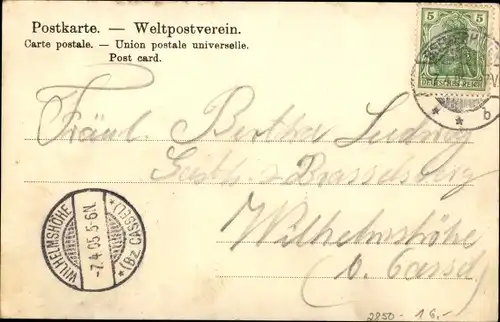 Postkarte. — Weltpostverein.
Carte postale. — Union postale universelle.
Post card.
5 5
DEUTSCHES REICH
b
Fräul. Bertha Ludwig
Gasth. z. Brasselsberg
Wilhelmshöhe
(b. Cassel)
WILHELMSHÖHE
-7.4.05.5-6N.
*(BZ. CASSEL)*
2850- 16.-